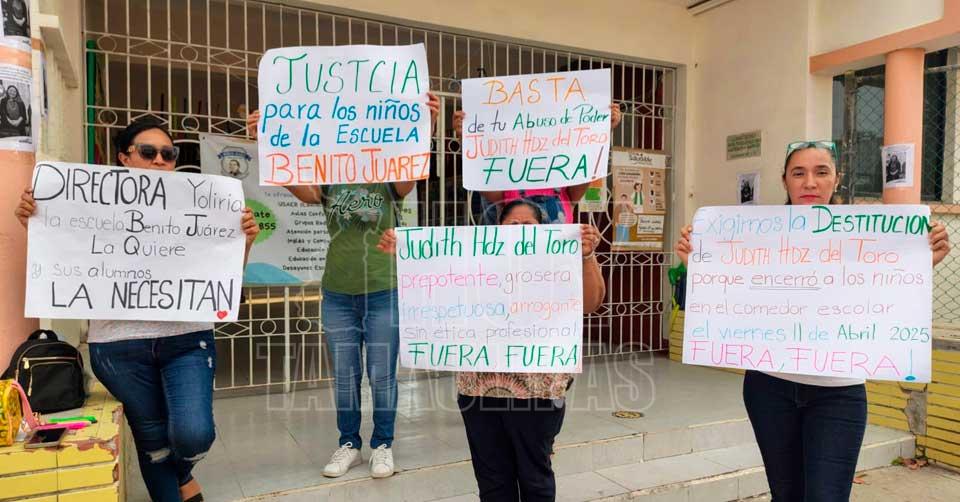 DIRECTORA Yoliria
la escuela Benito Juárez
La Quiere
y sus alumnos
LA NECESITAN
JUSTCIA
para los niños
de la ESCUELA
BENITO JUÁREZ
BASTA
de tu Abuso de Poder
JUDITH HDZ DEL TORO
FUERA!
JUDITH HDZ DEL TORO
prepotente, grosera
irrespetuosa, arrogante
sin ética profesional
FUERA, FUERA
EXIGIMOS LA DESTITUCIÓN
de JUDITH HDZ DEL TORO
porque encerró a los niños
en el comedor escolar
el viernes 11 de Abril 2025
FUERA, FUERA!
USAER
Aulas
Atención
Inglés
Educación
Desayunos
TAMAULIPAS